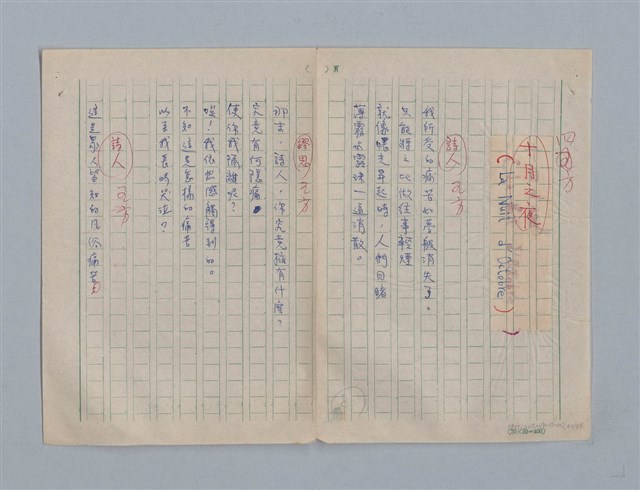 四百方
十月之夜
(La Nuit d'Octobre)
詩人 元方
我所受的痛苦如夢般消失了。
只能將之比做往事輕煙
就像曙光昇起時，人們目睹
薄霧與露珠一道消散。
元方
那末，詩人，你究竟擁有什麼？
究竟有何隱痛
使你我隔離呢？
唉！我依然感觸得到的。
不知這是怎樣的痛苦
以至我長時哭泣？
詩人 元方
這是眾人皆知的凡俗痛苦